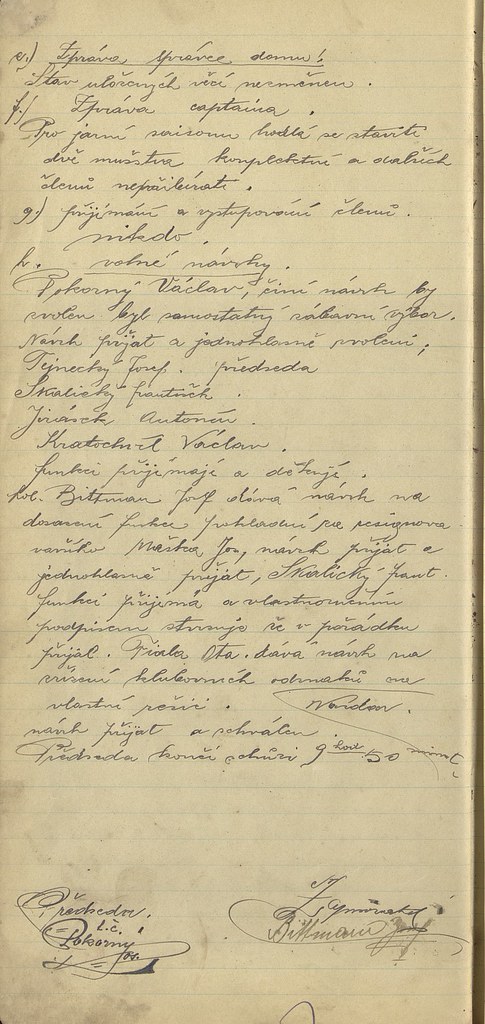 e.) Zpráva správce domu!
Stav uložených věcí nezměněn.
f.) Zpráva captaina.
Pro jarní saisonu hodlá se staviti
dvě mužstva kompletní a dalších
členů nepřibírati.
g.) přijímání a vystupování členů.
nikdo.
h. volné návrhy.
Pokorný Václav, činí návrh by
zvolen byl samostatný zábavní výbor.
Návrh přijat a jednohlasně zvoleni;
Tejnecký Josef. předseda
Skalický František.
Jirásek Antonín.
Kratochvíl Václav.
funkci přijímají a děkují.
kol. Bittman Josef dává návrh na
dosazení funkce pokladní za resignova-
vavšího Maška Jos, návrh přijat a
jednohlasně přijat, Skalický Frant.
funkci přijímá a vlastnoručním
podpisem stvrzuje že v pořádku
přijal. Fiala Ota. dává návrh na
zřízení klubovních odznaků na
vlastní režii.
návrh přijat a schválen. Nazdar.
Předseda končí schůzi 9 hod 50 minut
Předseda.
t.č.
Pokorný
Jos.
Zapisovatel
Bittmann Josef